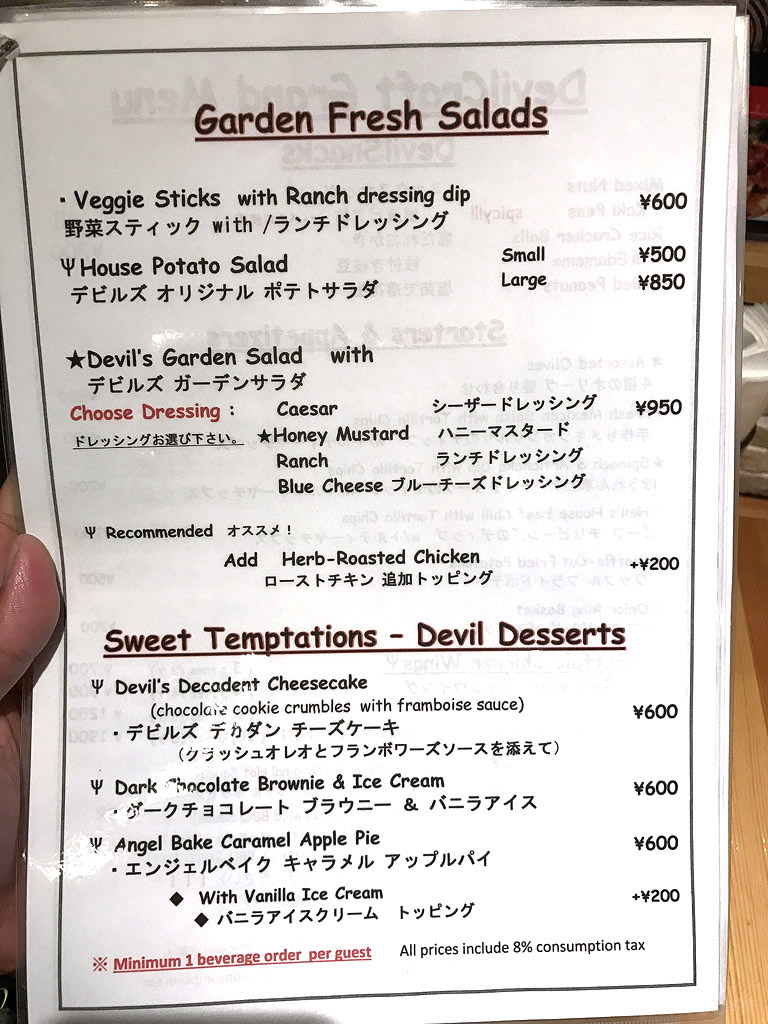 Garden Fresh Salads
・Veggie Sticks with Ranch dressing dip ¥600
野菜スティック with /ランチドレッシング
Ψ House Potato Salad Small ¥500
デビルズ オリジナル ポテトサラダ Large ¥850
★Devil's Garden Salad with
デビルズ ガーデンサラダ
Choose Dressing : Caesar シーザードレッシング ¥950
ドレッシングお選び下さい。 ★Honey Mustard ハニーマスタード
Ranch ランチドレッシング
Blue Cheese ブルーチーズドレッシング
Ψ Recommended オススメ！
Add Herb-Roasted Chicken +¥200
ローストチキン 追加トッピング
Sweet Temptations – Devil Desserts
Ψ Devil's Decadent Cheesecake
(chocolate cookie crumbles with framboise sauce) ¥600
・デビルズ デカダン チーズケーキ
(クラッシュオレオとフランボワーズソースを添えて)
Ψ Dark Chocolate Brownie & Ice Cream ¥600
・ダークチョコレート ブラウニー & バニラアイス
Ψ Angel Bake Caramel Apple Pie ¥600
・エンジェルベイク キャラメル アップルパイ
◆ With Vanilla Ice Cream +¥200
◆ バニラアイスクリーム トッピング
※ Minimum 1 beverage order per guest All prices include 8% consumption tax